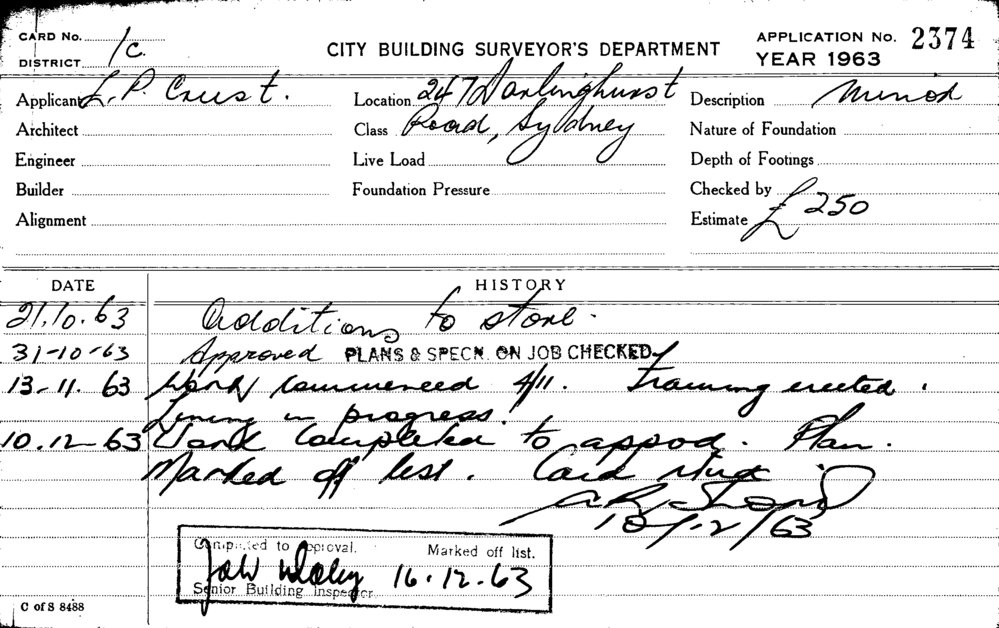 CARD No. 1c.
DISTRICT
CITY BUILDING SURVEYOR'S DEPARTMENT
APPLICATION No. 2374
YEAR 1963
Applicant L. P. Crust.
Location 247 Darlinghurst
Description Minor
Architect
Class Road, Sydney
Nature of Foundation
Engineer
Live Load
Depth of Footings
Builder
Foundation Pressure
Checked by
Alignment
Estimate £250
DATE HISTORY
21.10.63 Additions to store.
31-10-63 Approved PLANS & SPECN. ON JOB CHECKED
13-11.63 Work commenced 4/11. Framing erected.
Lining in progress.
10.12-63 Work completed to appod. Plan.
Marked off list. Card
10/12/63
Completed to approval. Marked off list.
16.12.63
Senior Building Inspector
C of S 8488